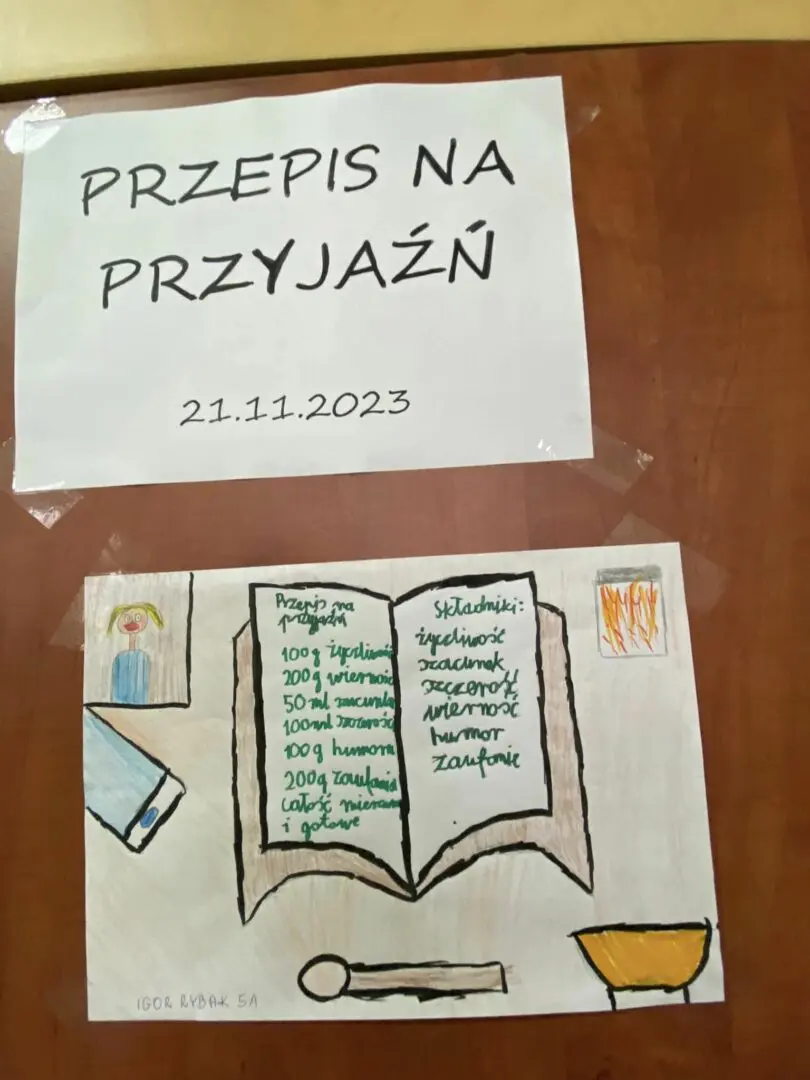 PRZEPIS NA
PRZYJAŹŃ
21.11.2023
Przepis na
przyjaźń
100g życzliwości
200g wierność
50 ml szacunku
100 ml szczerość
100g humoru
200g zaufania
całość mieszamy
i gotowe
Składniki:
życzliwość
szacunek
szczerość
wierność
humor
zaufanie
IGOR RYBAK 5A